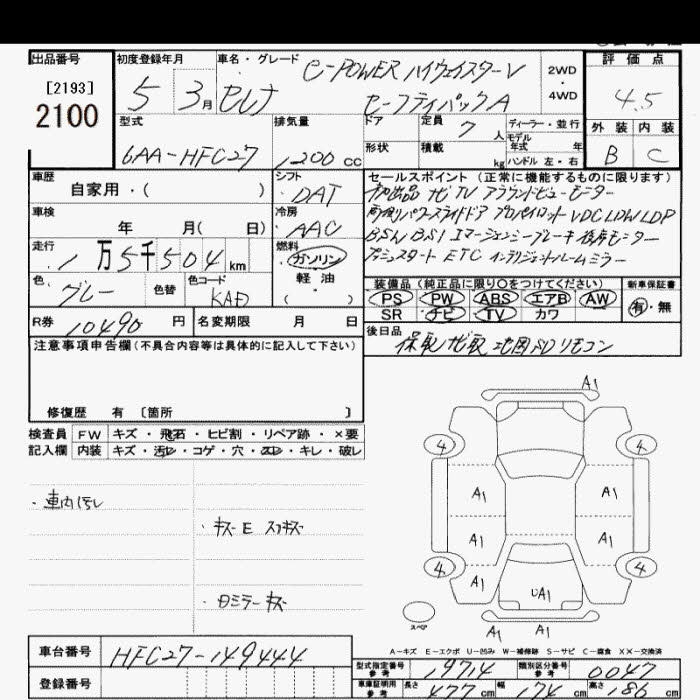 出品番号
[2193]
2100
初度登録年月
5 3月
車名・グレード
セレナ
e-POWER ハイウェイスターV
セーフティパックA
2WD
・
4WD
評価点
4.5
外装 内装
B C
型式
6AA-HFC27
排気量
1200 cc
ドア
定員 7 人
形状
積載 kg
ディーラー・並行
モデル年式 年
ハンドル 左・右
車歴
自家用・( )
シフト
DAT
車検
年 月( 日)
冷房
AAC
走行
1万5千504 km
燃料
ガソリン
軽油
( )
色
グレー
色替
色コード
KAD
R券 10490 円
名変期限 月 日
セールスポイント (正常に機能するものに限ります)
ナビ TV アラウンドビューモニター
両側パワースライドドア プロパイロット VDC LDW LDP
BSW BSI エマージェンシーブレーキ
ETC インテリジェントルームミラー
装備品 (純正品に限り○をつけてください)
PS PW ABS エアB AW
SR ナビ TV カワ
新車保証書
有・無
後日品
保取 ナビ取 地図SD リモコン
注意事項申告欄(不具合内容等は具体的に記入して下さい)
修復歴 有 〔箇所 〕
検査員記入欄
FW キズ・飛石・ヒビ割・リペア跡・×要
内装 キズ・汚レ・コゲ・穴・スレ・キレ・破レ
・車内汚レ
・キズ E スリキズ
・ミラーキズ
A1
4 4
A1 A1
A1 A1
4 4
A1 UA1
A1
スペア
A-キズ E-エクボ U-凹み W-補修跡 S-サビ C-腐食 XX-交換済
車台番号 HFC27-149444
登録番号
型式指定番号 参考 19714
類別区分番号 参考 0047
車庫証明用 参考 長さ 477 cm 幅 174 cm 高さ 186 cm